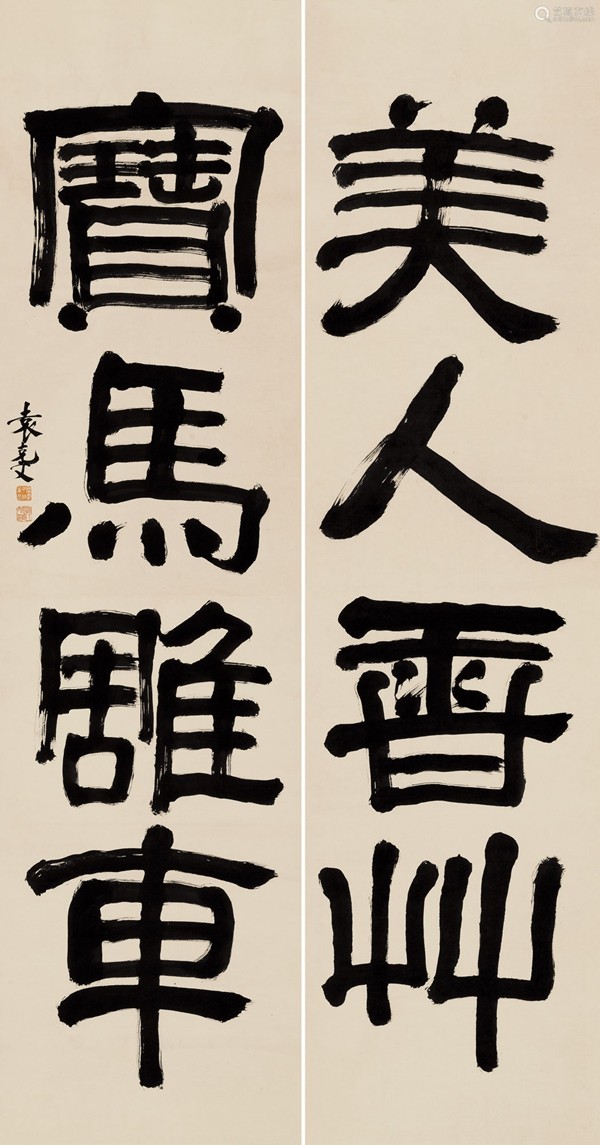 美人香艸
寶馬雕車
袁克文